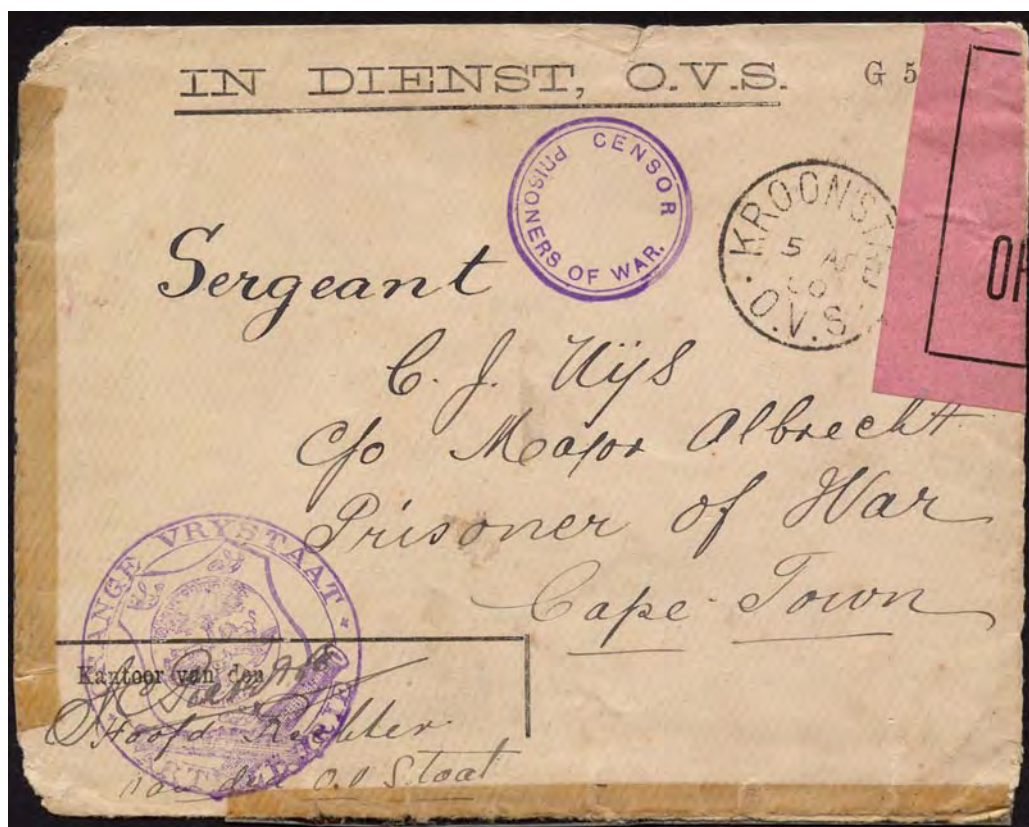 IN DIENST, O.V.S.
G 5
PRISONERS OF WAR. CENSOR
KROONSTA
5 AP
00
O.V.S.
OP
Sergeant
C. J. Uijs
c/o Major Albrecht
Prisoner of War
Cape Town
ANJE VRYSTAAT
ART RIE
Kantoor van den
Hoofd Rechter
van den O.V Staat